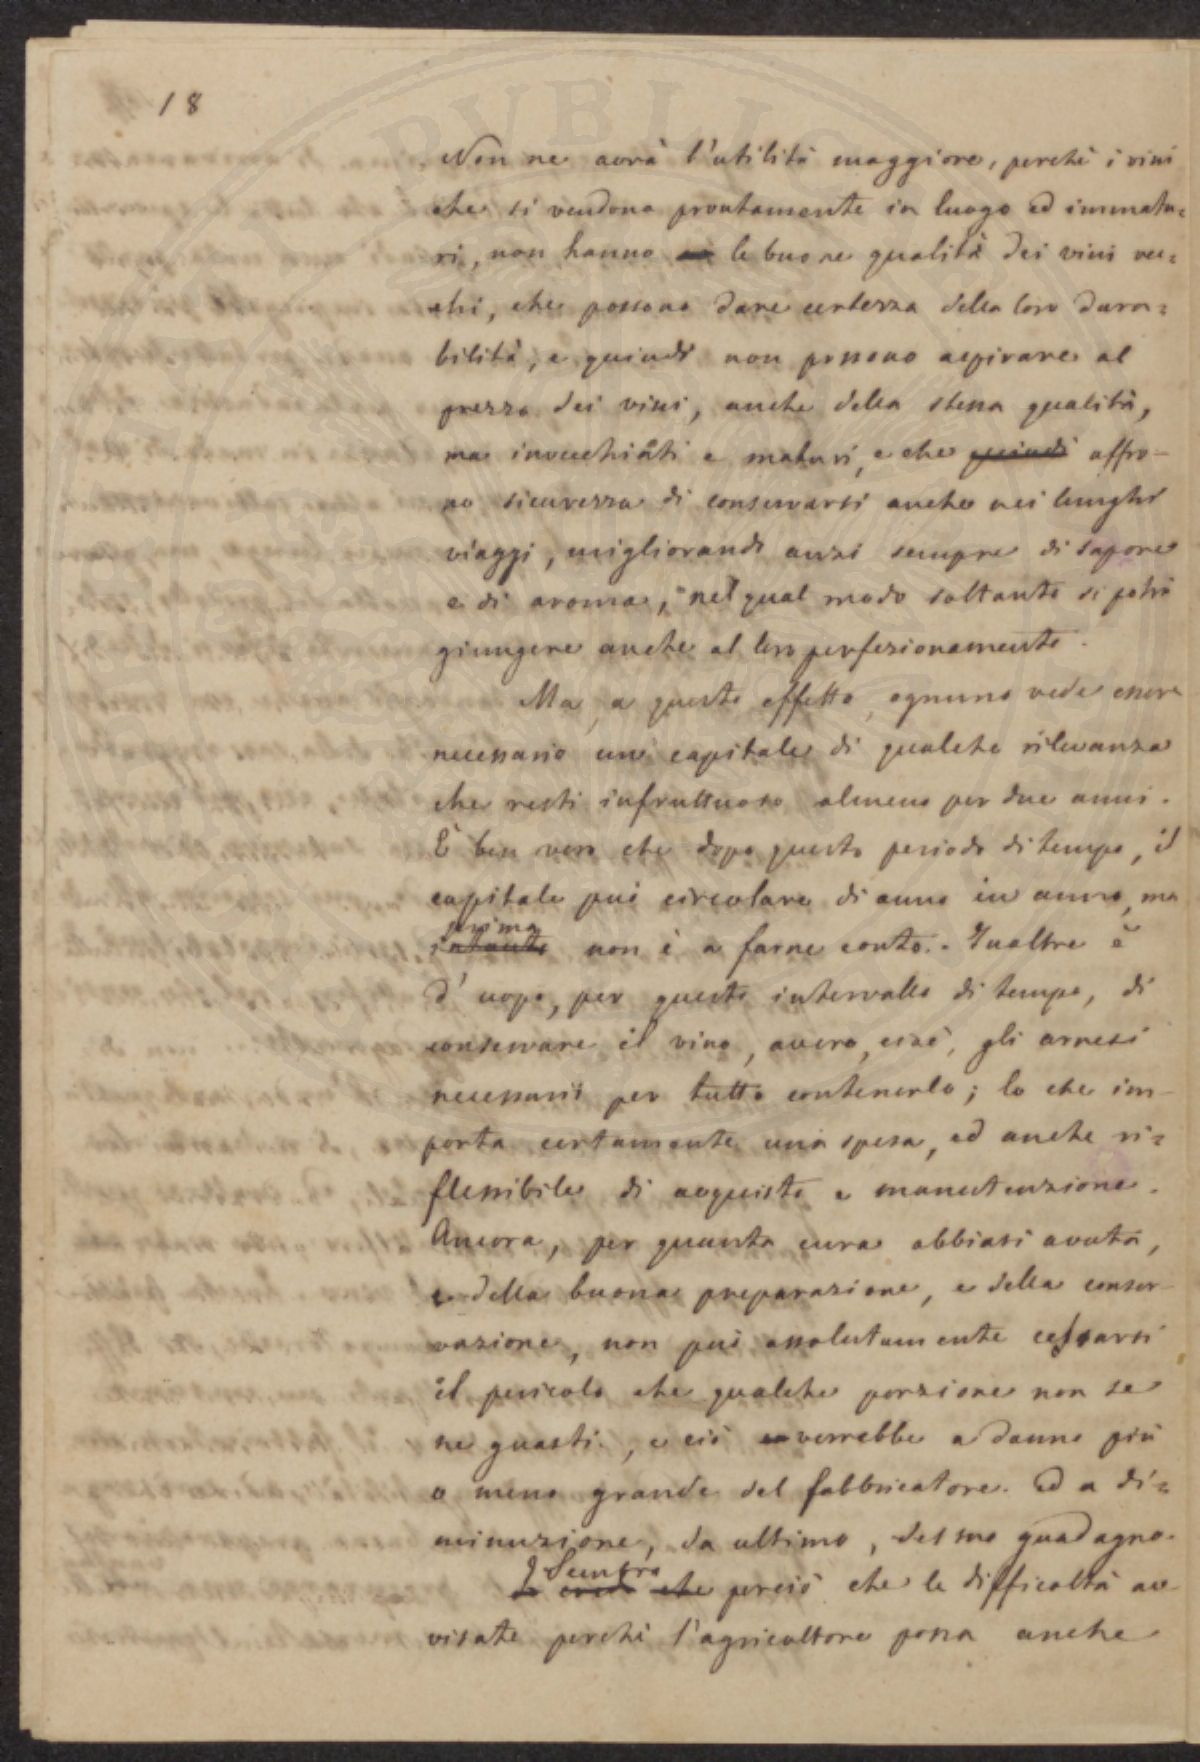 18
Non ne avrà l'utilità maggiore, perchè i vini
che si vendono prontamente in luogo ed immatu=
ri, non hanno le buone qualità dei vini vec=
chi, che possono dare certezza della loro dura=
bilità, e quindi non possono aspirare al
prezzo dei vini, anche della stessa qualità,
ma invecchiati e maturi, e che quindi offro-
no sicurezza di conservarsi anche nei lunghi
viaggi, migliorando anzi sempre di sapore
e di aroma, nel qual modo soltanto si potrà
giungere anche al loro perfezionamento.
Ma, a questo effetto, ognuno vede essere
necessario un capitale di qualche rilevanza
che resti infruttuoso almeno per due anni.
È ben vero che dopo questo periodo di tempo, il
capitale può circolare di anno in anno, ma
prima
intanto non è a farne conto. - Inoltre è
d'uopo, per questo intervallo di tempo, di
conservare il vino, avere, cioè, gli arnesi
necessarii per tutto contenerlo; lo che im-
porta certamente una spesa, ed anche ri=
flessibile di acquisto e manutenzione.
Ancora, per quanta cura abbiasi avuta,
e della buona preparazione, e della conser-
vazione, non può assolutamente cessarsi
il pericolo che qualche porzione non se
ne guasti, e ciò verrebbe a danno più
o meno grande del fabbricatore. Ed a di=
minuzione, da ultimo, del suo guadagno.
Sembra
credo che perciò che le difficoltà av-
visate perchè l'agricoltore possa anche